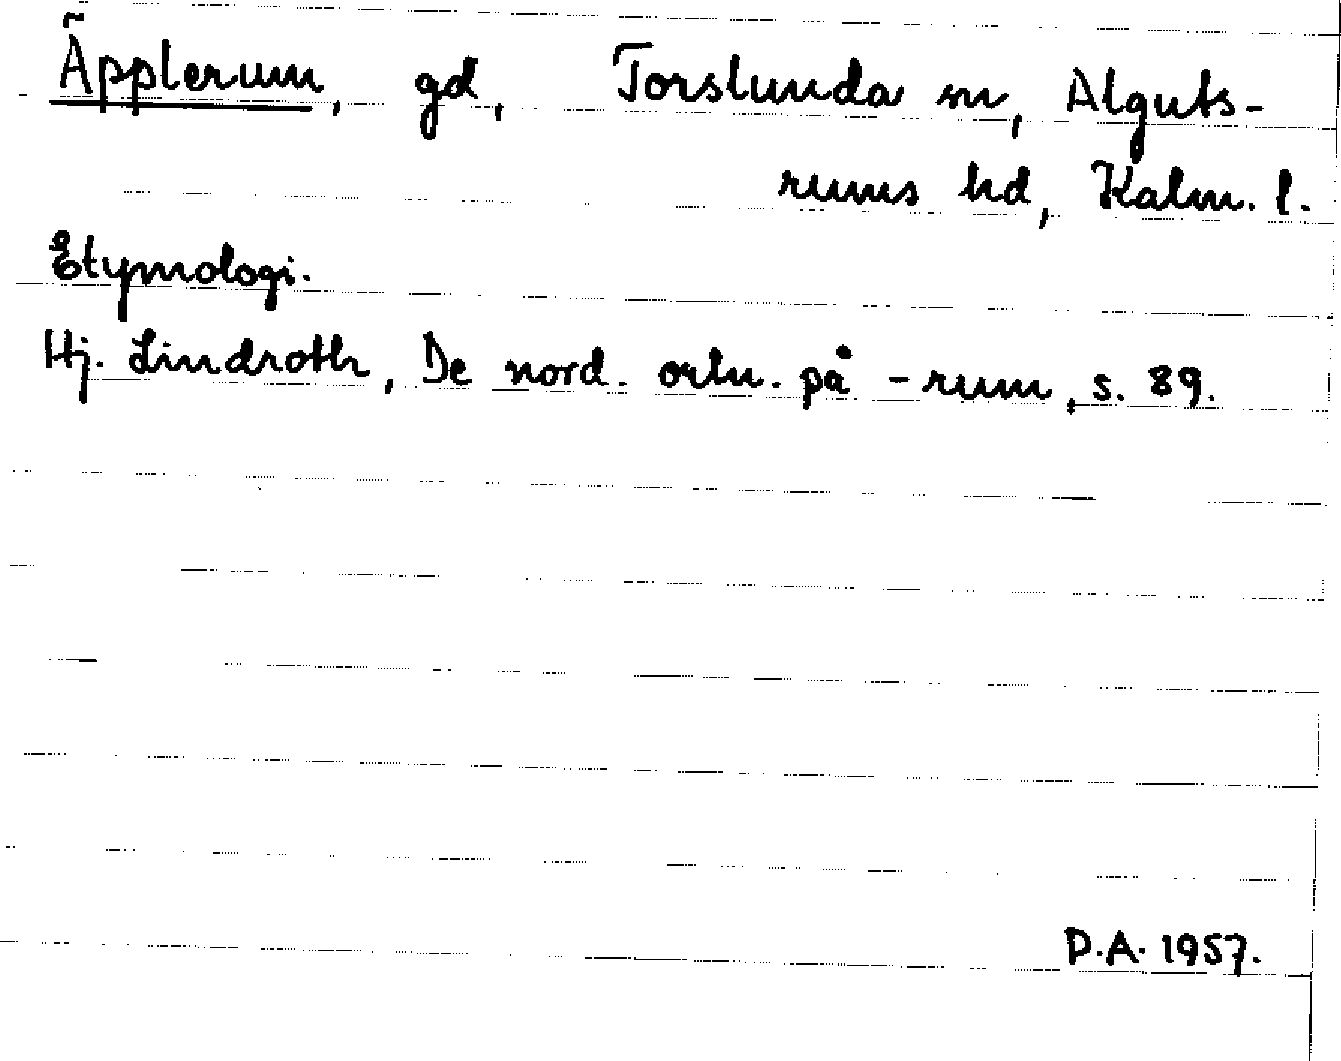 Äpplerum, gd, Torslunda sn, Alguts-
rums hd, Kalm. l.
Etymologi.
Hj. Lindroth, De nord. ortn. på -rum, s. 89.
D.A. 1957.